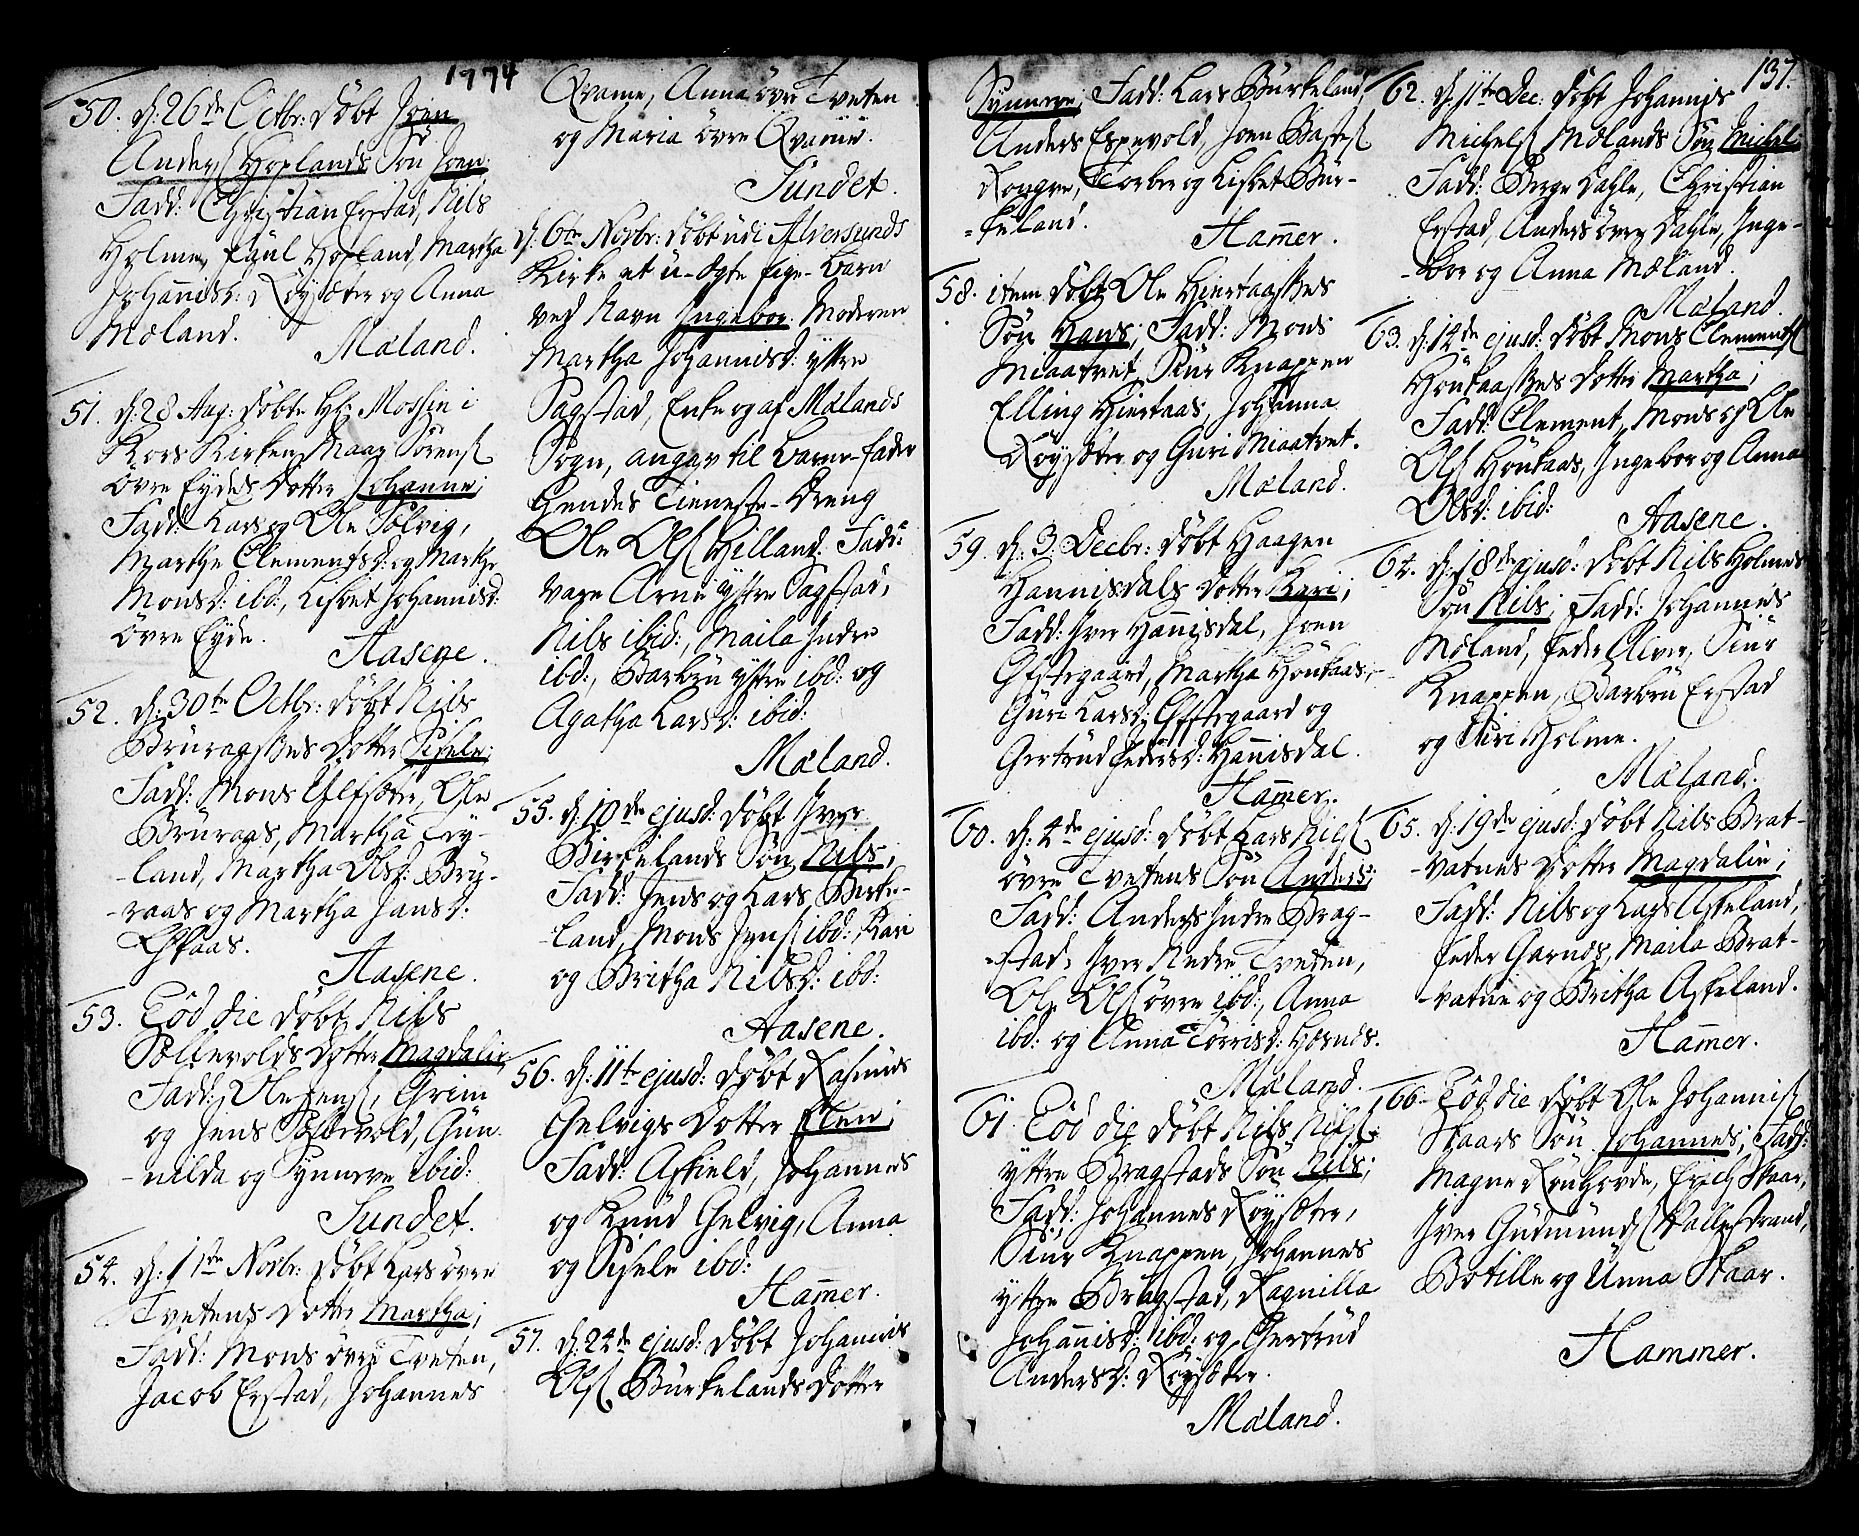 1774
50. d: 26de Octbr: døbt Joen
Anders: Hoplands Søn Joen
Fadd: Christian Erstad, Nils
Holme, Paul Hopland, Martha
Johannisd: Røysæter og Anna
Mæland. Mæland.
51. d: 28 Aug: døbte Hr: Mossin i
Kors Kirken Maar Sørens:
øvre Eydes Dotter Johanne;
Fadd: Lars og Ole Solvig,
Martha Clementsd: og Martha
Monsd: ibd:, Lisbet Johannisd:
øvre Eyde. Aasene.
52. d: 30te Octbr: døbt Nils
Bruraaskes Dotter Sisele;
Fadd: Mons Ulfsæter, Ole
Bruraas, Martha Fry-
-land, Martha Olsd: Bru-
-raas og Martha Jansd:
Eskaas.
Aasene.
53. Eod die døbt Nils
Søllevolds Dotter Magdalin;
Fadd: Ole Jens:, Grim
og Jens Søllevold, Gun-
-nilda og Synneve ibid:
Sundet.
54. d: 1ste Novbr: døbt Lars øvre
Tvetens Dotter Martha;
Fadd: Mons øvre Tveten,
Jacob Erstad, Johannes
Qvame, Anna øvre Tveten
og Maria øvre Qvame.
Sundet.
d: 6te Novbr: døbt udi Alversunds
Kirke et u-ægte Pige-Barn
ved Navn Ingebor. Moderen
Martha Johannisd: yttre
Sagstad, Enke og af Mælands
Sogn, angav til Barne-fader
hendes Tieneste-Dreng
Ole Ols: Hilland. Fadd:
vare Arne yttre Sagstad,
Nils ibid:, Maila Indre
ibd:, Barbru yttre ibd: og
Agatha Larsd: ibid:
Mæland.
55. d: 10de ejusd: døbt Iver
Birkelands Søn Nils;
Fadd: Jens og Lars Birke-
-land, Mons Jens: ibd:, Kari
og Britha Nilsd: ibd:
Aasene.
56. d: 11te ejusd: døbt Rasmus
Helvigs Dotter Elen;
Fadd: Askield, Johannes
og Knud Helvig, Anna
og Sisele ibd:
Hammer.
57. d: 24de ejusd: døbt Johannis
Ols: Burkelands Dotter
137.
Synneve; Fadd: Lars Burkeland,
Anders Espevold, Joen
Torber og Lisbet Bur-
-keland. Hammer.
58. item døbt Ole Hiertaaskes
Søn Hans; Fadd: Mons
Miaatvet, Siur Knappen
Elling Hiertaas, Johanna
Røysæter og Guri Miaatvet.
Mæland.
59. d: 3 Decbr: døbt Haagen
Hannisdals Dotter Kari;
Fadd: Iver Hannisdal, Joen
Ofstegaard, Martha Hønkaas,
Guri Larsd: Ofstegaard og
Gertrud Pedersd: Hannisdal.
Hammer.
60. d: 4de ejusd: døbt Lars Niels:
øvre Tvetens Søn Anders;
Fadd: Anders Indre Brag-
-stad, Iver Nedre Tveten,
Ole Ols: øvre ibd:, Anna
ibd: og Anna Torrisd: Hosnøs.
Mæland.
61. Eod die døbt Nils Nils:
yttre Bragstads Søn Nils;
Fadd: Johannes Røysæter,
Siur Knappen, Johannes
yttre Bragstad, Ragnilla
Johannisd: ibd: og Gertrud
Andersd: Røysæter.
Mæland.
62. d: 11te Dec: døbt Johannis
Michels: Mælands Søn Michel;
Fadd: Berge Dahle, Christian
Erstad, Anders øvre Dahle, Inge-
-bor og Anna Mæland.
Mæland.
63. d: 14de ejusd: døbt Mons Clements:
Hønkaaskes Dotter Martha;
Fadd: Clement, Mons og Ole
Ols: Hønkaas, Ingebor og Anna
Olsd: ibid: Aasene.
64. d: 18de ejusd: døbt Nils Holmes
Søn Nils; Fadd: Johannes
Mæland, Peder Alver, Siur
Knappen, Barbru Erstad
og Siri Holme.
Mæland.
65. d: 19de ejusd: døbt Nils Brat-
-vatnes Dotter Magdalin;
Fadd: Nils og Lars Askeland,
Peder Garnæs, Maila Brat-
-vatne og Britha Askeland.
Hammer.
66. Eod die døbt Ole Johannis:
Skaars Søn Johannes; Fadd:
Magne Rønhovde, Erich Skaar,
Iver Gudmunds: Vallestrand,
Botille og Unna Skaar.
Hammer.